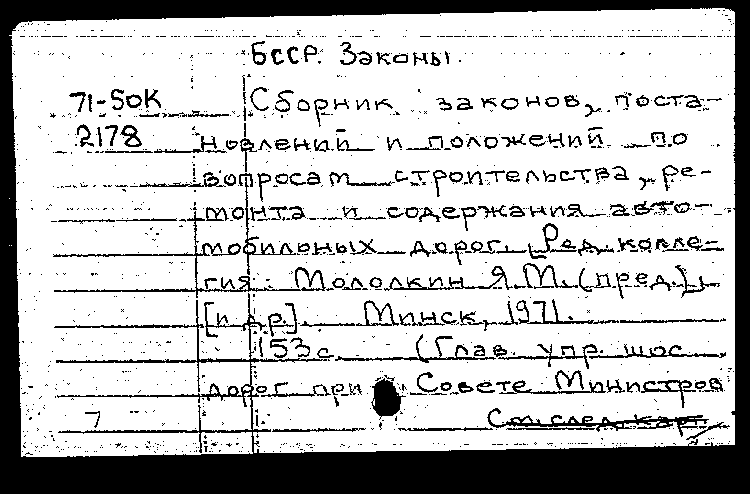 БССР. Законы.
71-50К Сборник законов, поста-
2178 новлений и положений по
вопросам строительства, ре-
монта и содержания авто-
мобильных дорог. [Ред. колле-
гия: Мололкин Я.М. (пред.),
[и др]. Минск, 1971.
153с. (Глав. упр. шос.
дорог при Совете Министров
7 См. след. карт.